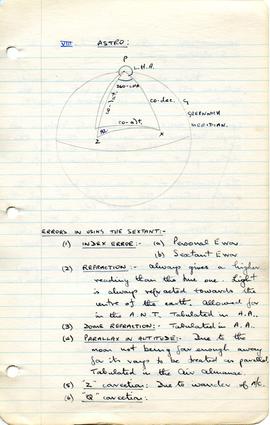 VIII ASTRO:
P
L.H.A.
360-LHA
co-lat.
co-dec.
G
GREENWICH
MERIDIAN.
co-alt.
Z
X
ERRORS IN USING THE SEXTANT:-
(1) INDEX ERROR:- (a) Personal Error
(b) Sextant Error
(2) REFRACTION:- Always gives a higher
reading than the true one. Light
is always refracted towards the
centre of the earth. Allowed for
in the A.N.T. Tabulated in A.A..
(3) DOME REFRACTION:- Tabulated in A.A.
(4) PARALLAX IN ALTITUDE:- Due to the
moon not being far enough away
for its rays to be treated as parallel.
Tabulated in the Air Almanac.
(5) "Z" correction: Due to wander of A/c.
(6) "Q" correction: